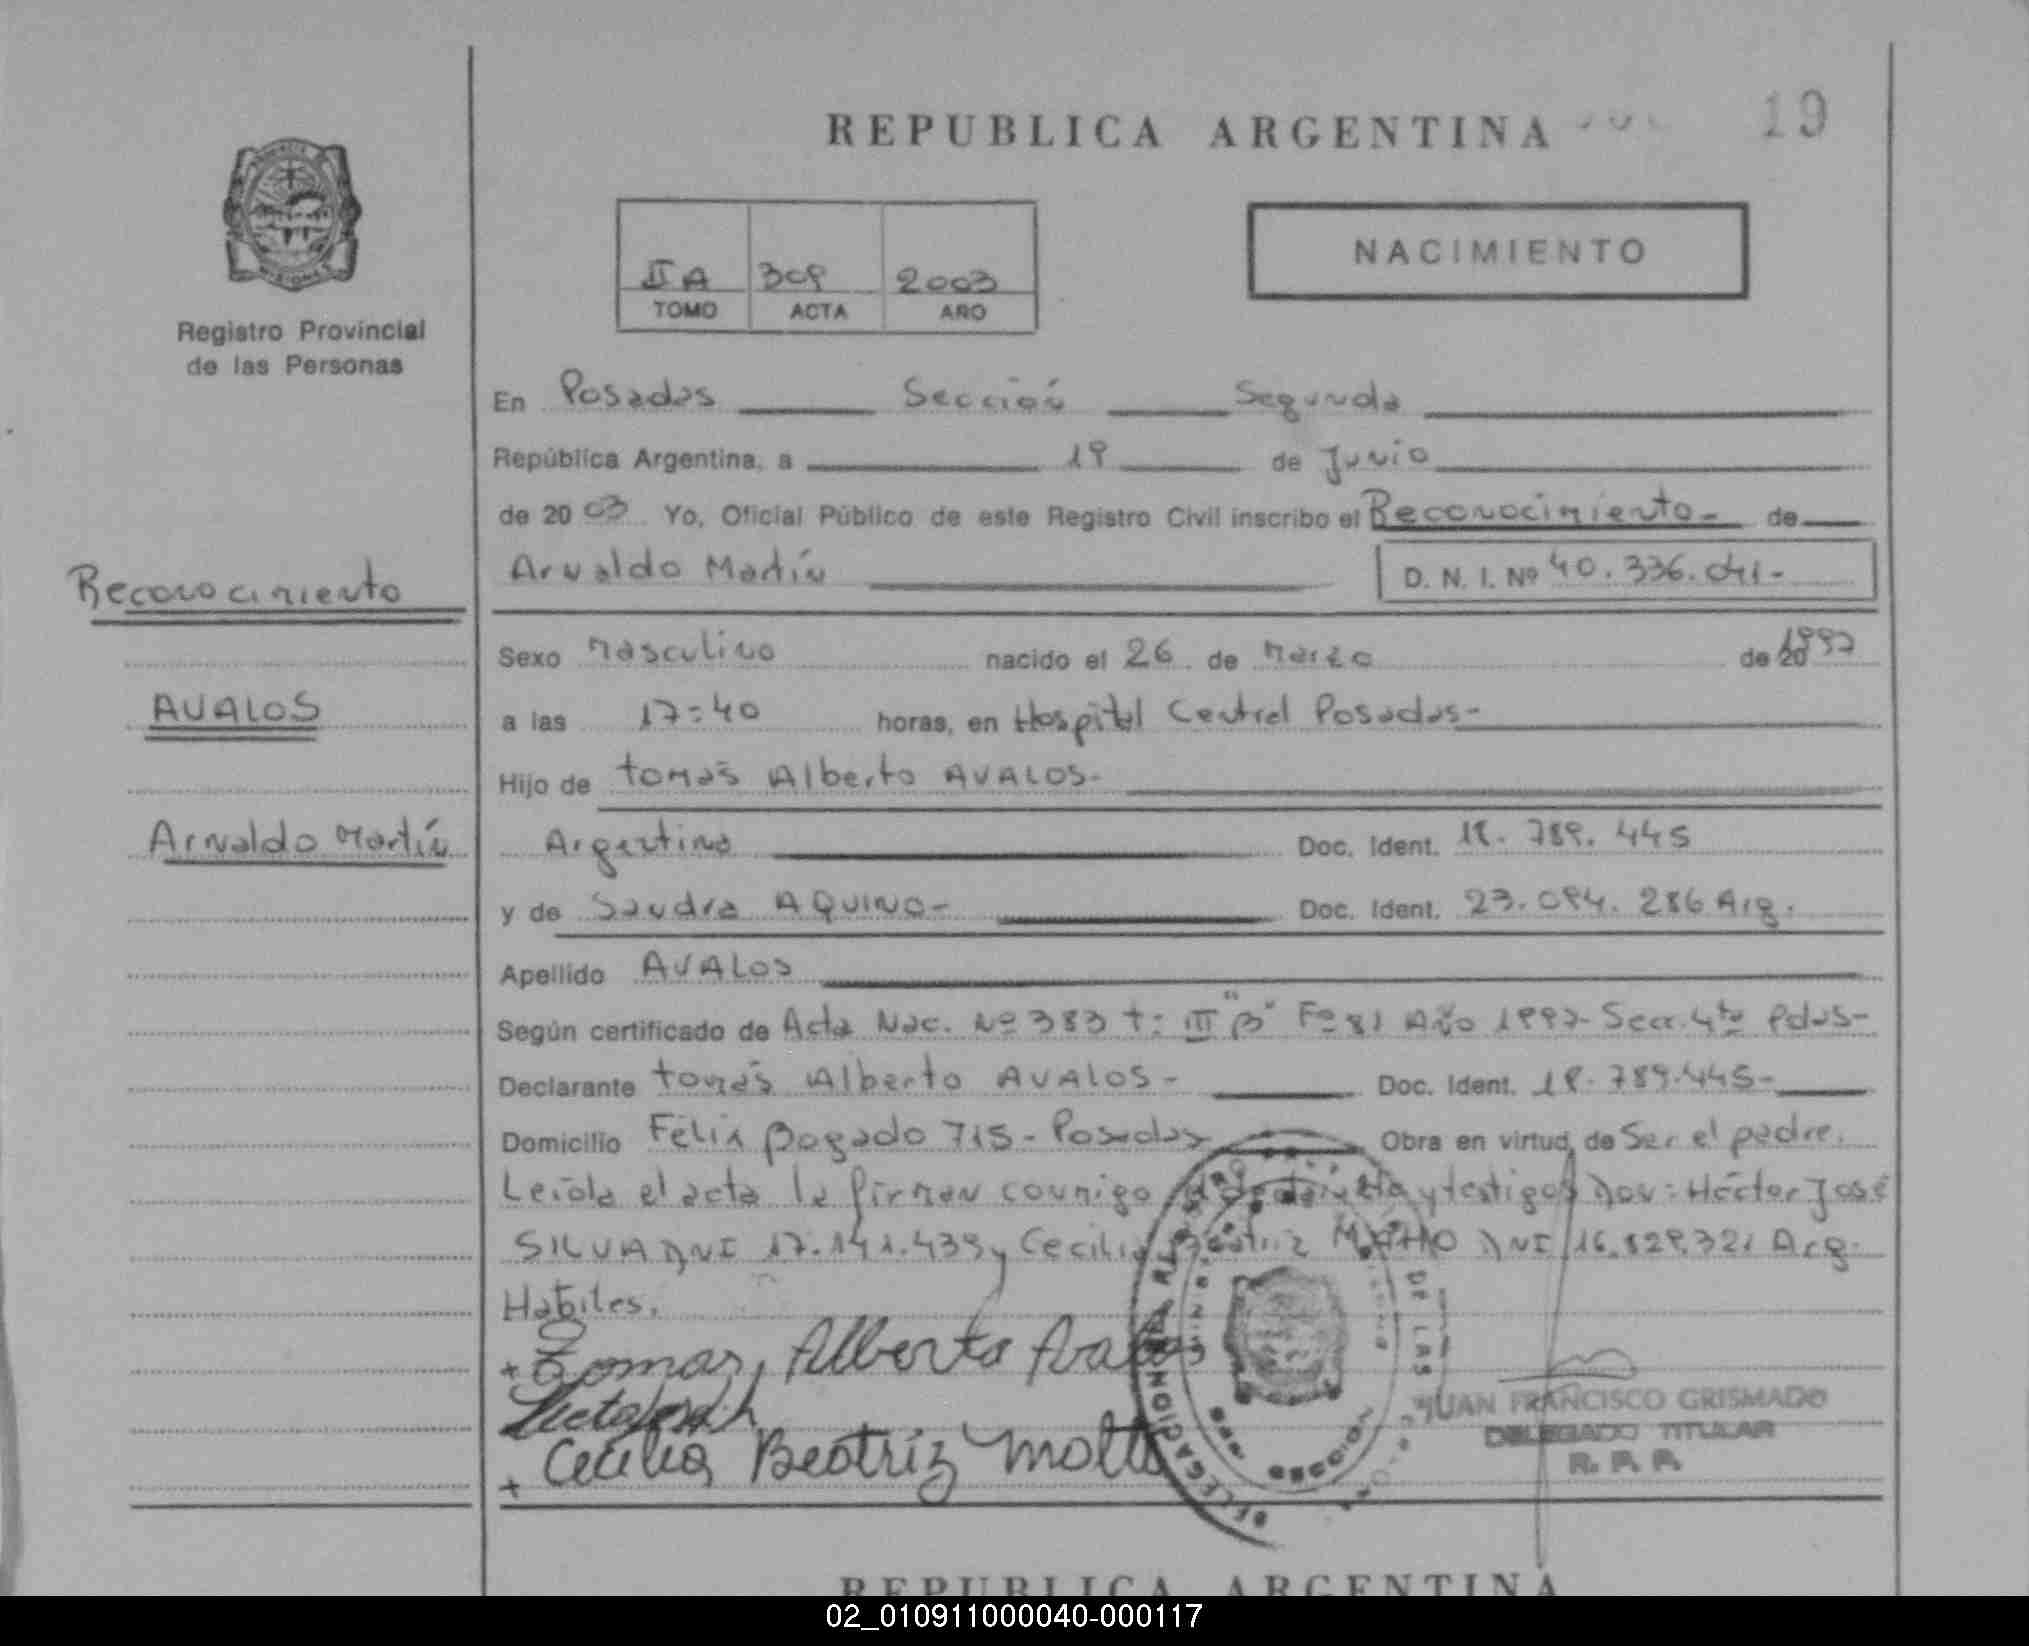 REPUBLICA ARGENTINA
19
Registro Provincial
de las Personas
II A 309 2003
TOMO ACTA AÑO
NACIMIENTO
En Posadas Sección Segunda
República Argentina, a 19 de Junio
de 2003 Yo, Oficial Público de este Registro Civil inscribo el Reconocimiento- de
Arnaldo Martín D. N. I. Nº 40.336.041-
Reconocimiento
Sexo Masculino nacido el 26 de Marzo de 20 1997
AVALOS
a las 17:40 horas, en Hospital Central Posadas-
Hijo de Tomás Alberto AVALOS-
Arnaldo Martín
Argentino Doc. Ident. 18.789.445
y de Sandra AQUINO- Doc. Ident. 23.094.286 Arg.
Apellido AVALOS
Según certificado de Acta Nac. Nº 383 t: III "B" Fº 81 Año 1997- Secc. 4ta Pdas-
Declarante Tomás Alberto AVALOS- Doc. Ident. 18.789.445-
Domicilio Félix Bogado 715- Posadas Obra en virtud de Ser el padre.
Leída el acta la firman conmigo y testigos Don: Héctor José
SILVA DNI 17.141.439 y Cecilia Beatriz DNI 16.829.321 Arg.
Habiles.
+ Tomas, Alberto Avalos
+ Cecilia Beatriz Motto
DELEGACION
DE LAS
JUAN FRANCISCO GRISMADO
DELEGADO TITULAR
R. P. P.
REPUBLICA ARGENTINA
02_010911000040-000117